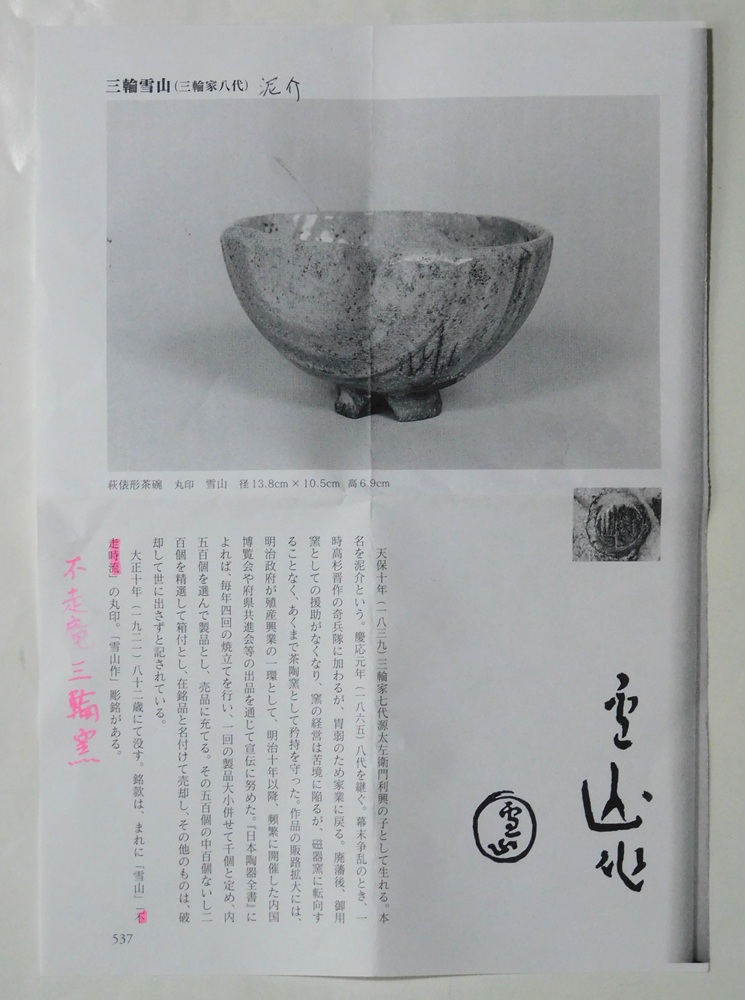 三輪雪山(三輪家八代) 泥介
萩俵形茶碗 丸印 雪山 径13.8cm×10.5cm 高6.9cm
天保十年(一八三九)三輪家七代源太左衛門利興の子として生れる。本
名を泥介という。慶応元年(一八六五)八代を継ぐ。幕末争乱のとき、一
時高杉晋作の奇兵隊に加わるが、胃弱のため家業に戻る。廃藩後、御用
窯としての援助がなくなり、窯の経営は苦境に陥るが、磁器窯に転向す
ることなく、あくまで茶陶窯として矜持を守った。作品の販路拡大には、
明治政府が殖産興業の一環として、明治十年以降、頻繁に開催した内国
博覧会や府県共進会等の出品を通じて宣伝に努めた。『日本陶器全書』に
よれば、毎年四回の焼立てを行い、一回の製品大小併せて千個と定め、内
五百個を選んで製品とし、売品に充てる。その五百個の中百個ないし二
百個を精選して箱付とし、在銘品と名付けて売却し、その他のものは、破
却して世に出さずと記されている。
大正十年(一九二一)八十二歳にて没す。銘款は、まれに「雪山」「不
走時流」の丸印。「雪山作」彫銘がある。
不走庵三輪窯
雪山作
雪山
537